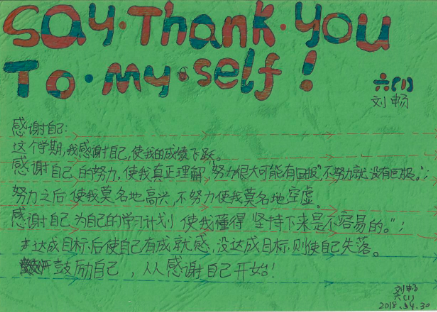 Say·Thank·you
To·my·self!
六(1)
刘畅
感谢自己:
这个学期,我感谢自己,使我的成绩飞跃。
感谢自己的努力,使我真正理解,"努力很大可能有回报,不努力就没有回报。";
努力之后使我莫名地高兴,不努力使我莫名地空虚。
感谢自己为自己的学习计划 使我懂得"坚持下来是不容易的。";
达成目标后使自己有成就感,没达成目标则使自己失落。
鼓励自己,从感谢自己开始!
六(1)
2018.04.30